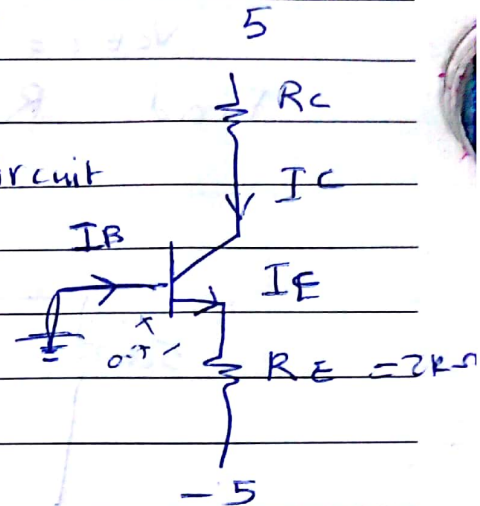 5
RC
ircuit
IC
IB
IE
0.7
RE = 2kΩ
-5